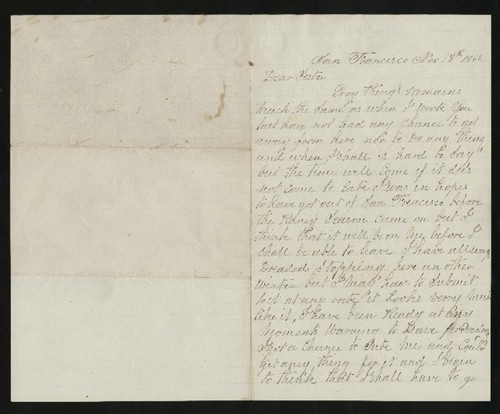 San Francisco Nov 18th
Dear Sister
Evry thing remains
much the same as when I wrote you
last hay not had any chance to get
away from here nor to do any thing
and when I shall is hard to say
but the time will come if it does
not come to late I was in hopes
to have got out of San Francisco before
the Rainy Season came on but I
think that it will be on me before I
shall be able to leave I have allways
Dreaded Stopping here an other
Winter but I shall have to Submit
at any rate it Looks verry much
like it, I have been Ready at any
moments Warning to Leave
I got a chance to and could
get any thing for it and I begin
to think that I shall have to go